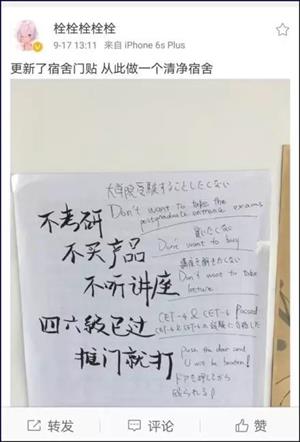 栓栓栓栓栓
9-17 13:11 来自 iPhone 6s Plus
更新了宿舍门贴 从此做一个清净宿舍
大学院受験することしたくない
不考研 Don't want to take the
postgraduate entrance exams
買いたくない
不买产品 Don't want to buy
講座を聞きたくない
不听讲座 Don't want to take
lecture
四六级已过 CET-4 & CET-6 passed
CET-4とCET-6の試験に合格した
推门就打 Push the door and
U will be beaten!
ドアを押してから
殴られる
转发
评论
赞